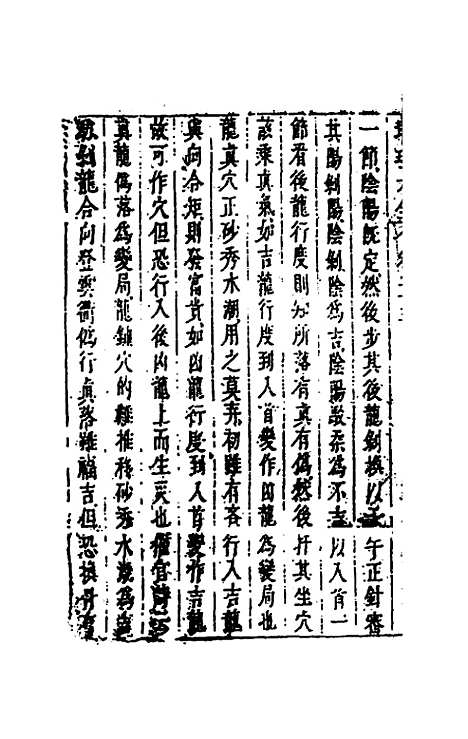 一節陰陽旣定然後步其後龍剝換以子午正針審
其陽剝陽陰剝陰爲吉陰陽駁杂爲不吉以入首一
節看後龍行度則知所落有真有僞然後扦其坐穴
該乘真氣如吉龍行度到入首變作凶龍爲變局也
龍真穴正砂秀水潮用之莫弃初雖有吝行入吉龍
與向合矩則發富貴如凶龍行度到入首變作吉龍
故可作穴但恐行入後凶龍上而生災也催官詩云
真龍僞落爲變局龍鎮穴的難推移砂秀水幾爲
剝龍合向登雲衢僞行真落雖福吉但恐換